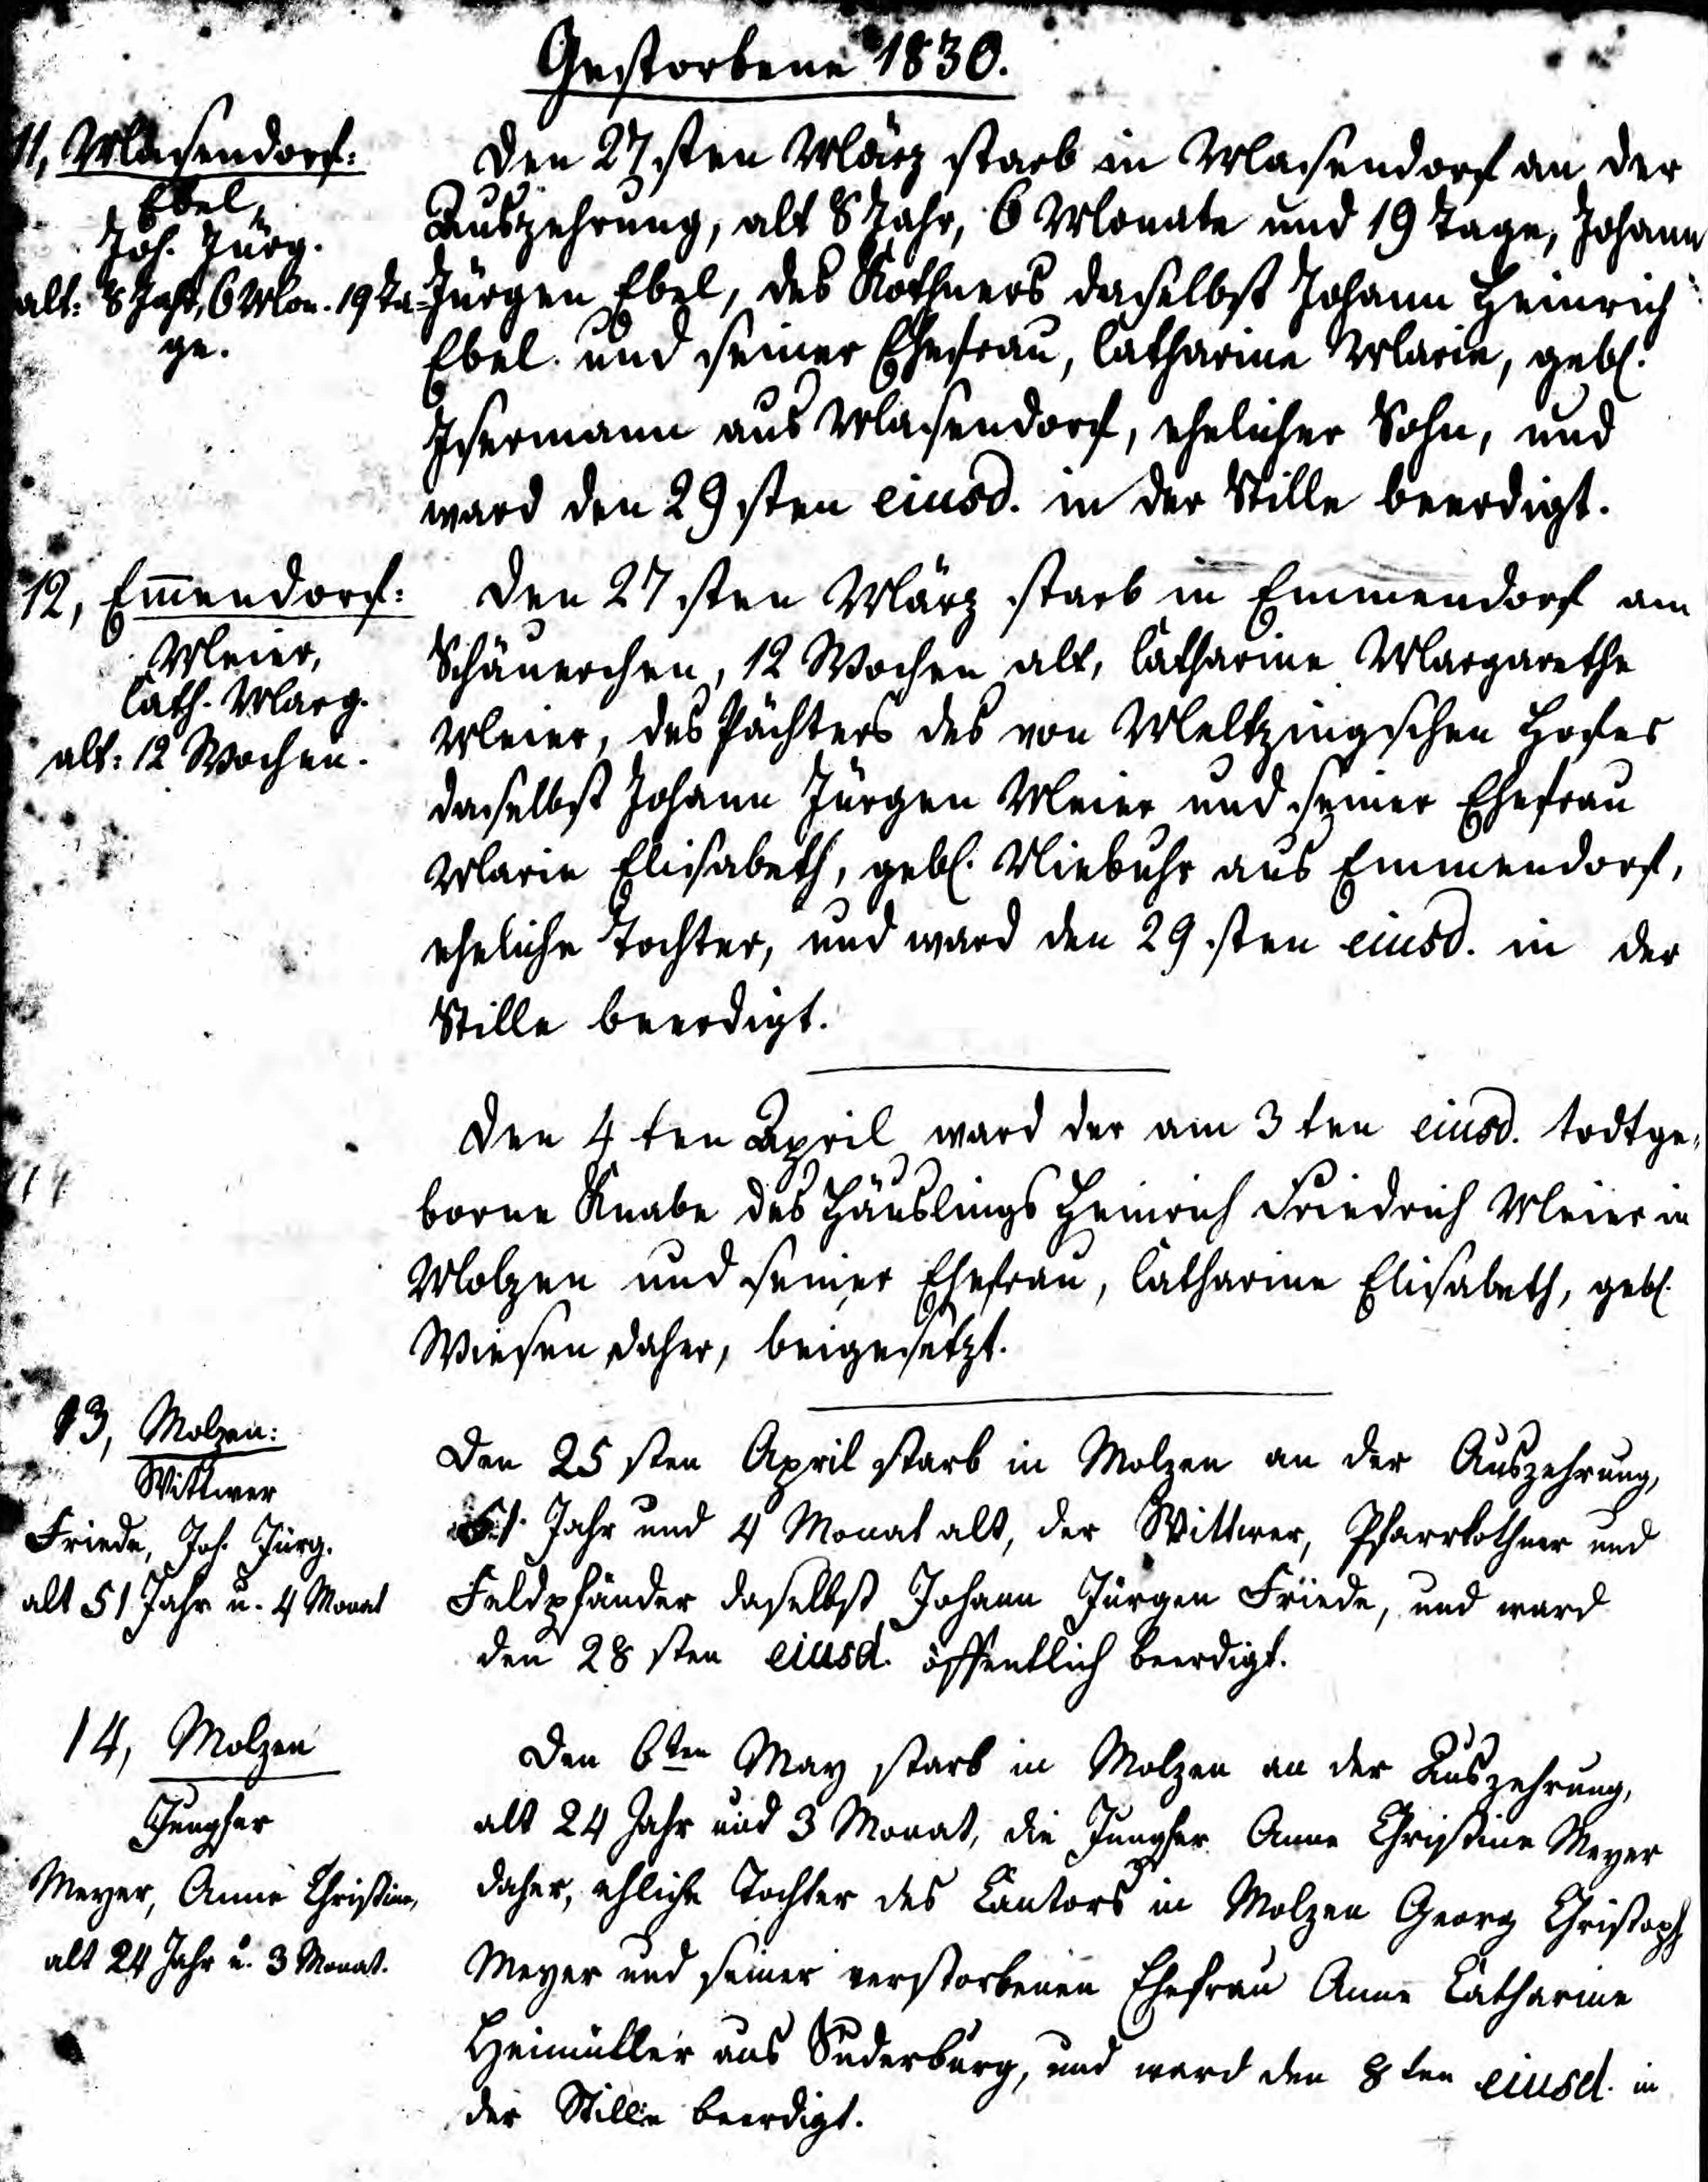 Gestorbene 1830.
11, Masendorf:
Ebel,
Joh. Jürg.
alt: 8 Jahr, 6 Mon. 19 Ta-
ge.
Den 27sten März starb in Masendorf an der
Auszehrung, alt 8 Jahr, 6 Monate und 19 Tage, Johann
Jürgen Ebel, des Kothners daselbst Johann Heinrich
Ebel und seiner Ehefrau, Catharine Marie, gebl.
Isermann aus Masendorf, ehelicher Sohn, und
ward den 29sten eiusd. in der Stille beerdigt.
12, Em̄endorf:
Meier,
Cath. Marg.
alt: 12 Wochen.
Den 27sten März starb in Emmendorf am
Schäuerchen, 12 Wochen alt, Catharine Margarethe
Meier, des Pächters des von Meltzingschen Hofes
daselbst Johann Jürgen Meier und seiner Ehefrau
Marie Elisabeth, gebl. Niebuhr aus Emmendorf,
eheliche Tochter, und ward den 29sten eiusd. in der
Stille beerdigt.
Den 4ten April ward der am 3ten eiusd. todtge-
borne Knabe des Häuslings Heinrich Friedrich Meier in
Molzen und seiner Ehefrau, Catharine Elisabeth, gebl.
Wiesen daher, beigesetzt.
13, Molzen:
Wittwer
Friede, Joh. Jürg.
alt 51 Jahr u. 4 Monat
Den 25sten April starb in Molzen an der Auszehrung,
51 Jahr und 4 Monat alt, der Wittwer, Pfarrkothner und
Feldpfänder daselbst Johann Jürgen Friede, und ward
den 28sten eiusd. öffentlich beerdigt.
14, Molzen
Jungfer
Meyer, Anne Christine,
alt 24 Jahr u. 3 Monat.
Den 6ten May starb in Molzen an der Auszehrung,
alt 24 Jahr und 3 Monat, die Jungfer Anne Christine Meyer
daher, ehliche Tochter des Cantors in Molzen Georg Christoph
Meyer und seiner verstorbenen Ehefrau Anne Catharine
Heimüller aus Suderburg, und ward den 8ten eiusd. in
der Stille beerdigt.